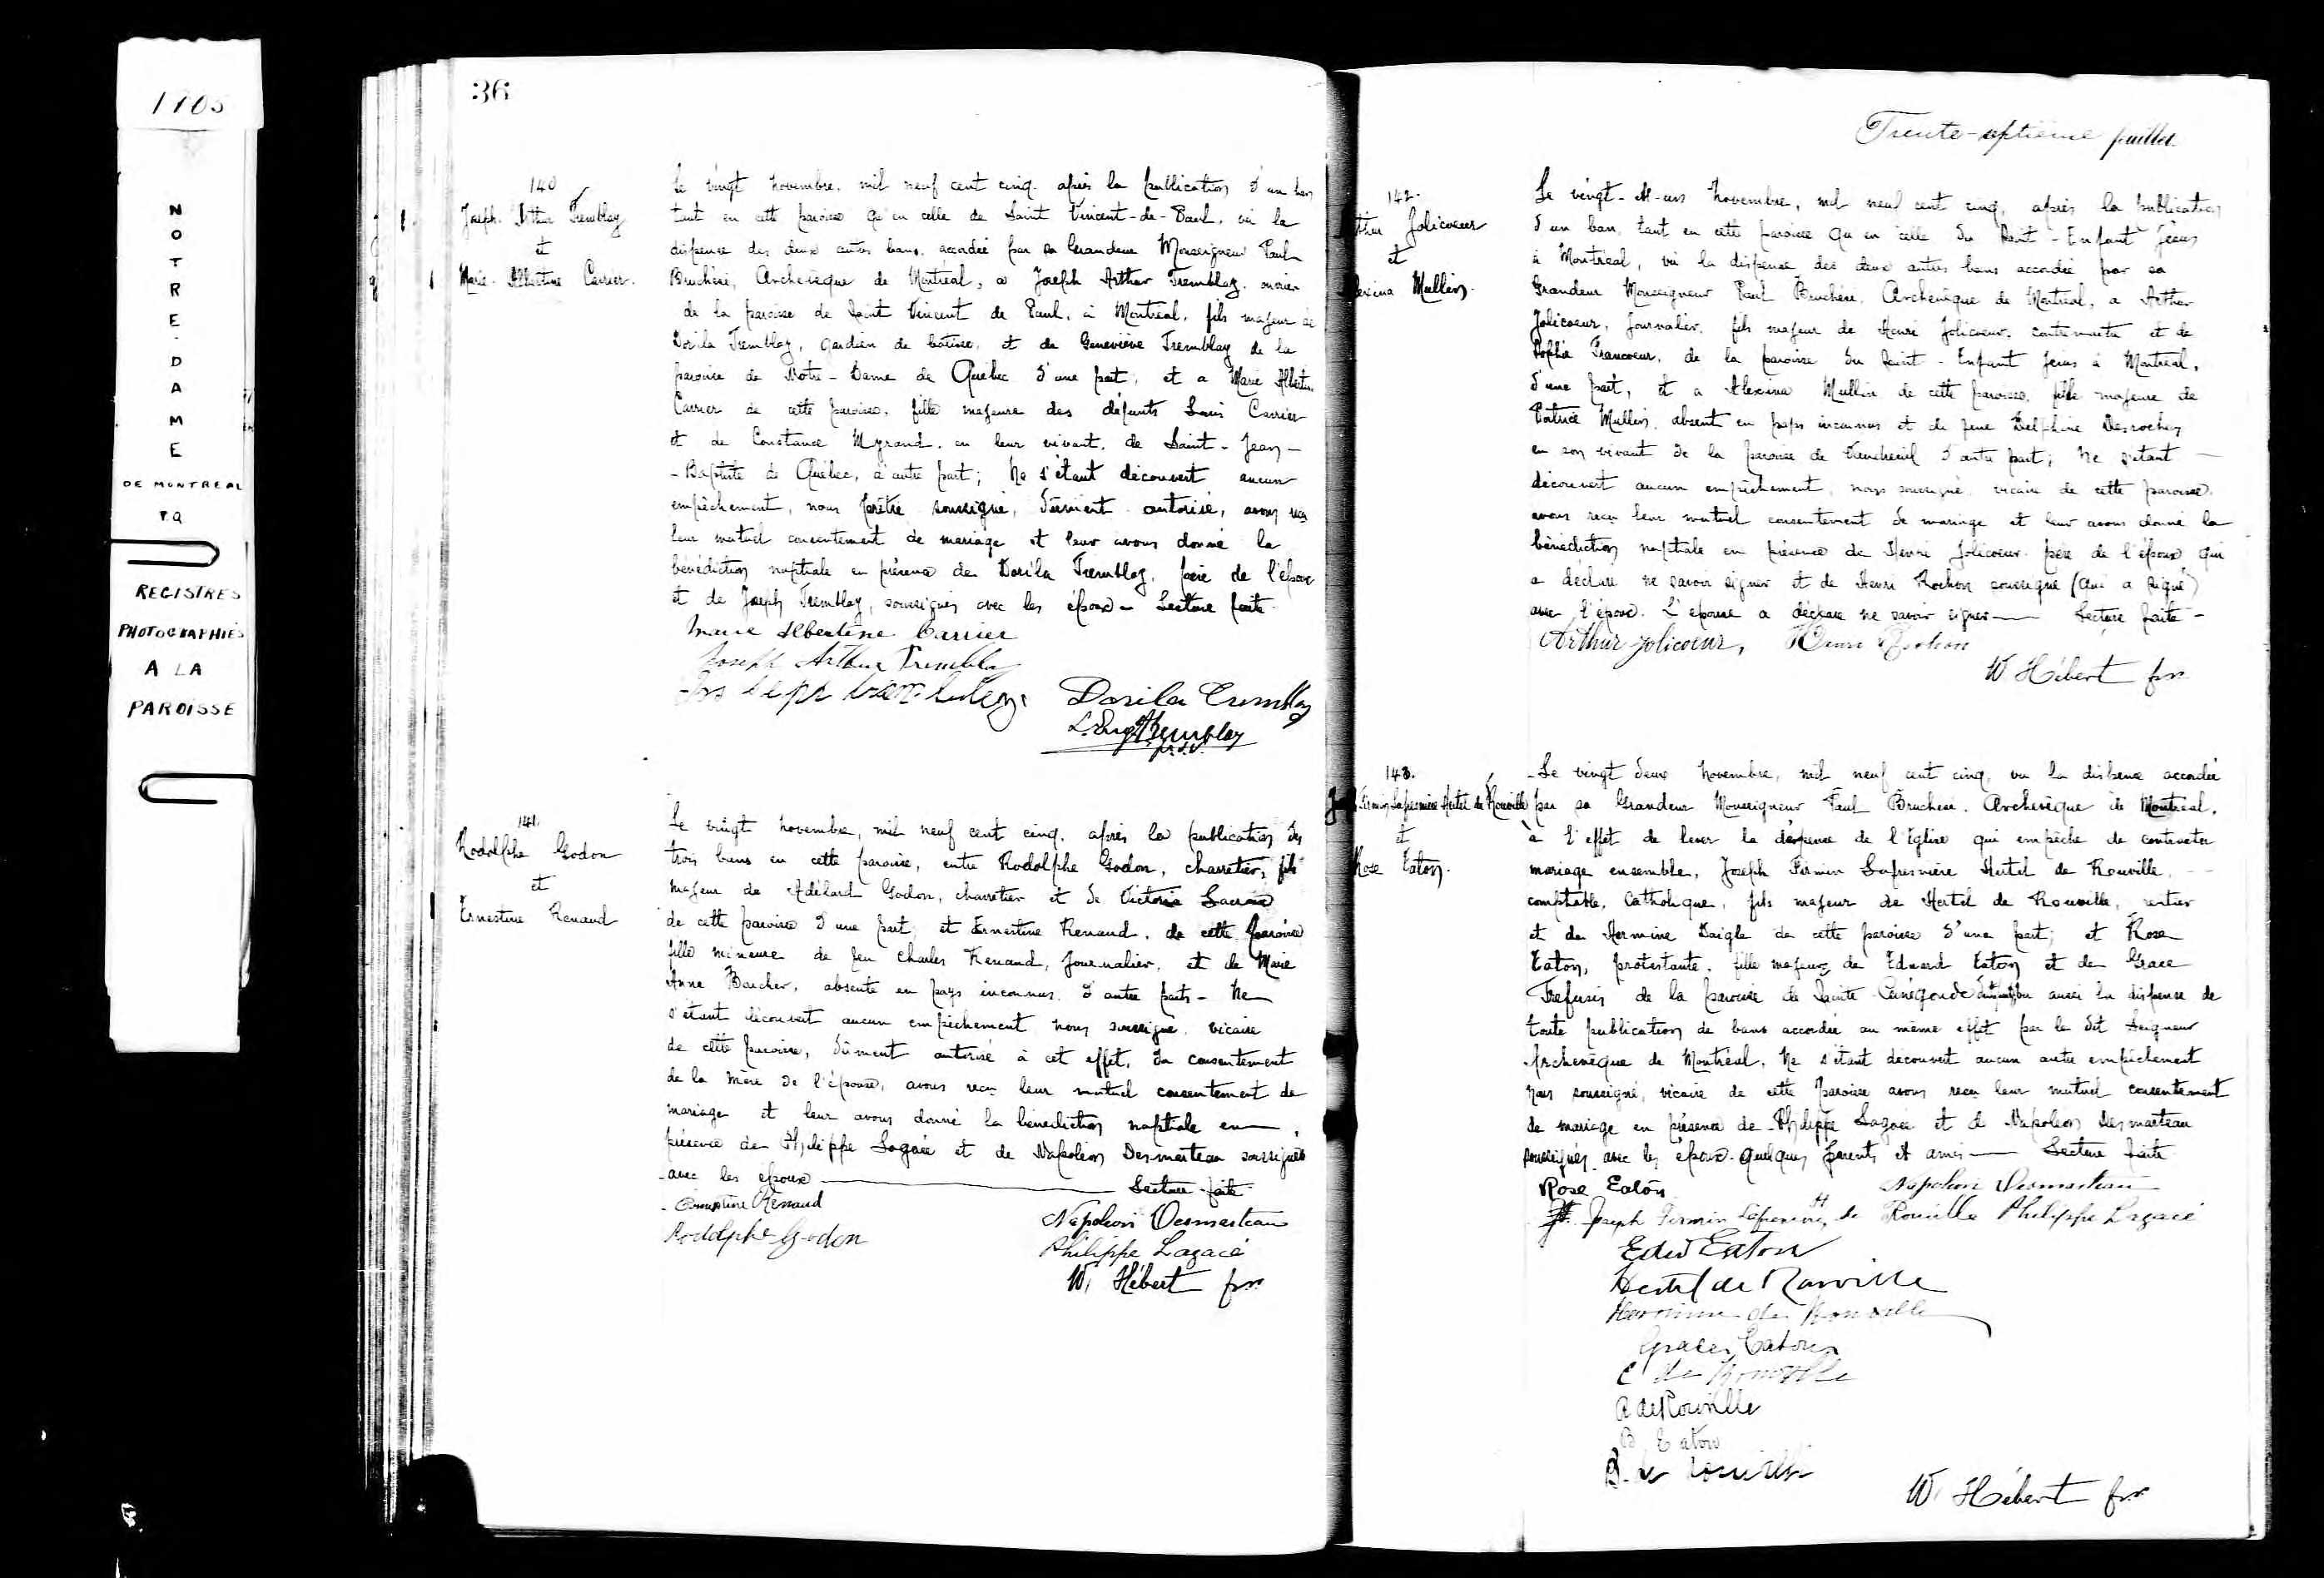 1905
NOTRE-DAME
DE MONTREAL
P.Q
REGISTRES
PHOTOGRAPHIÉS
A LA
PAROISSE
36
140
Joseph Arthur Tremblay
et
Marie-Albertine Carrier.
Le vingt novembre, mil neuf cent cinq, après la publication d'un ban
tant en cette paroisse qu'en celle de Saint Vincent-de-Paul, vu la
dispense des deux autres bans, accordée par sa Grandeur Monseigneur Paul
Bruchési, Archevêque de Montréal, a Joseph Arthur Tremblay, ouvrier
de la paroisse de Saint Vincent de Paul, à Montréal, fils majeur de
Dorila Tremblay, gardien de bâtisse, et de Geneviève Tremblay de la
paroisse de Notre-Dame de Québec d'une part, et a Marie Albertine
Carrier de cette paroisse, fille majeure des défunts Louis Carrier
et de Constance Myrand, en leur vivant, de Saint-Jean-
-Baptiste de Québec, d'autre part; Ne s'étant découvert aucun
empêchement, nous prêtre soussigné, dûment autorisé, avons reçu
leur mutuel consentement de mariage et leur avons donné la
bénédiction nuptiale en présence de Dorila Tremblay, père de l'époux
et de Joseph Tremblay, soussignés avec les époux - Lecture faite.
Marie Albertine Carrier
Joseph Arthur Tremblay
Dorila Tremblay
Tremblay
p.s.v.
141.
Rodolphe Godon
et
Ernestine Renaud
Le vingt novembre, mil neuf cent cinq, après la publication des
trois bans en cette paroisse, entre Rodolphe Godon, charretier, fils
majeur de Adélard Godon, charretier et de Victoria
de cette paroisse d'une part, et Ernestine Renaud, de cette paroisse
fille mineure de feu Charles Renaud, journalier, et de Marie
Anne Boucher, absente en pays inconnus, d'autre part - Ne
s'étant découvert aucun empêchement nous soussigné, vicaire
de cette paroisse, dûment autorisé à cet effet, du consentement
de la mère de l'épouse, avons reçu leur mutuel consentement de
mariage et leur avons donné la bénédiction nuptiale en
présence de Philippe Lagacé et de Napoléon Desmarteau soussignés
avec les époux Lecture faite
Ernestine Renaud
Napoléon Desmarteau
Rodolphe Godon
Philippe Lagacé
W. Hébert ptre
Trente-septième feuillet.
142.
Arthur Jolicoeur
et
Alexina Mullin.
Le vingt-et-un novembre, mil neuf cent cinq, après la publication
d'un ban, tant en cette paroisse qu'en celle du Saint-Enfant Jésus
à Montréal, vu la dispense des deux autres bans accordée par sa
Grandeur Monseigneur Paul Bruchési, Archevêque de Montréal, a Arthur
Jolicoeur, journalier, fils majeur de Henri Jolicoeur, et de
Sophie Francoeur, de la paroisse du Saint-Enfant Jésus à Montréal,
d'une part, et a Alexina Mullin de cette paroisse, fille majeure de
Patrice Mullin, absent en pays inconnus et de feue Delphine Desroches
en son vivant de la paroisse de Vaudreuil d'autre part; Ne s'étant
découvert aucun empêchement, nous soussigné, vicaire de cette paroisse,
avons reçu leur mutuel consentement de mariage et leur avons donné la
bénédiction nuptiale en présence de Henri Jolicoeur père de l'époux qui
a déclaré ne savoir signer et de Henri Rochon soussigné (qui a signé)
avec l'époux. L'épouse a déclaré ne savoir signer - Lecture faite -
Arthur Jolicoeur, Henri Rochon
W Hébert ptre
143.
Jos Firmin Lafresnière Hertel de Rouville
et
Rose Eaton.
Le vingt deux novembre, mil neuf cent cinq, vu la dispense accordée
par sa Grandeur Monseigneur Paul Bruchési, Archevêque de Montréal,
à l'effet de lever la défense de l'Eglise qui empêche de contracter
mariage ensemble, Joseph Firmin Lafresnière Hertel de Rouville,
comptable, Catholique, fils majeur de Hertel de Rouville, rentier
et de Hermine Daigle de cette paroisse d'une part; et Rose
Eaton, protestante, fille majeure de Edward Eaton et de Grace
Trefusis de la paroisse de Sainte Cunégonde vu aussi la dispense de
toute publication de bans accordée au même effet par le dit Seigneur
Archevêque de Montréal. Ne s'étant découvert aucun autre empêchement
Nous soussigné, vicaire de cette paroisse avons reçu leur mutuel consentement
de mariage en présence de Philippe Lagacé et de Napoléon Desmarteau
soussignés avec les époux. Quelques parents et amis - Lecture faite
Rose Eaton
Napoléon Desmarteau
Joseph Firmin Lafresnière H de Rouville Philippe Lagacé
Edwd Eaton
Hertel de Rouville
Hermine de Rouville
Grace Eaton
C de Rouville
A de Rouville
B Eaton
B. de Rouville
W. Hébert ptre